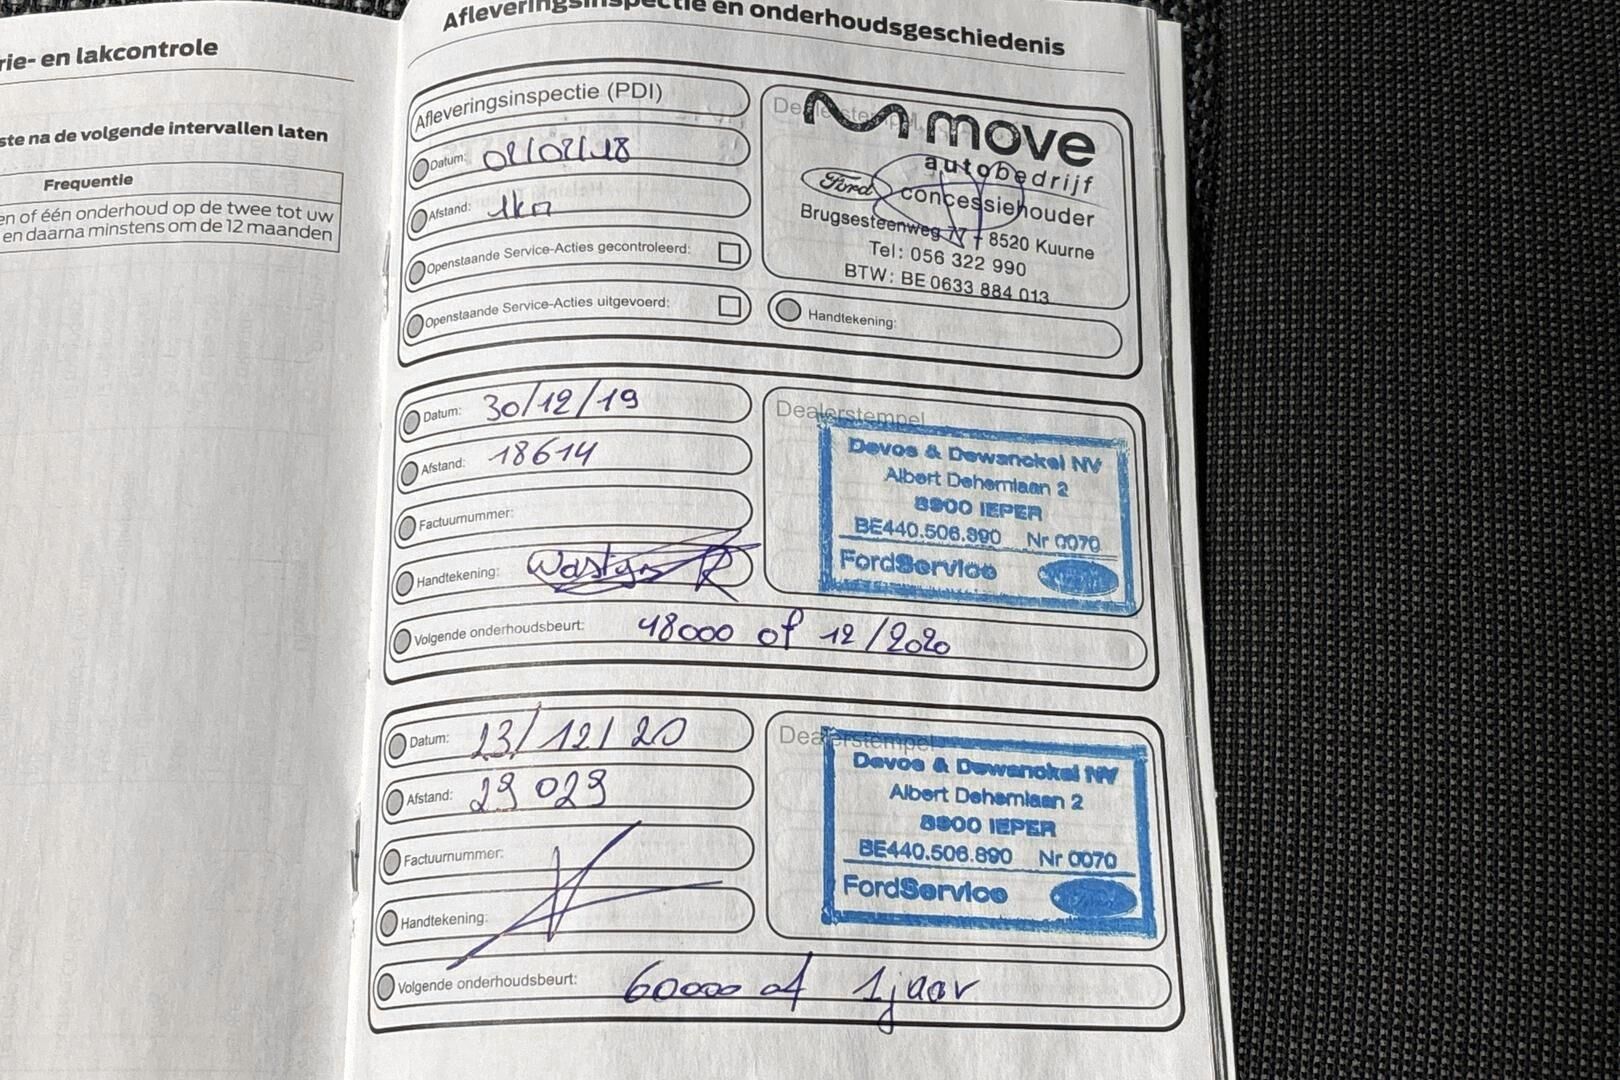 rie- en lakcontrole
ste na de volgende intervallen laten
Frequentie
en of één onderhoud op de twee tot uw
en daarna minstens om de 12 maanden
Afleveringsinspectie en onderhoudsgeschiedenis
Afleveringsinspectie (PDI)
Datum:
Afstand: 1km
Openstaande Service-Acties gecontroleerd:
Openstaande Service-Acties uitgevoerd:
move
autobedrijf
Ford concessiehouder
Brugsesteenweg 77 - 8520 Kuurne
Tel: 056 322 990
BTW: BE 0633 884 013
Handtekening:
Datum: 30/12/19
Afstand: 18614
Factuurnummer:
Handtekening:
Volgende onderhoudsbeurt: 48000 of 12/2020
Dealerstempel
Devos & Dewanckel NV
Albert Dehemlaan 2
8900 IEPER
BE440.506.890 Nr 0070
FordService
Datum: 23/12/20
Afstand: 29 029
Factuurnummer:
Handtekening:
Volgende onderhoudsbeurt: 60000 of 1 jaar
Dealerstempel
Devos & Dewanckel NV
Albert Dehemlaan 2
8900 IEPER
BE440.506.890 Nr 0070
FordService